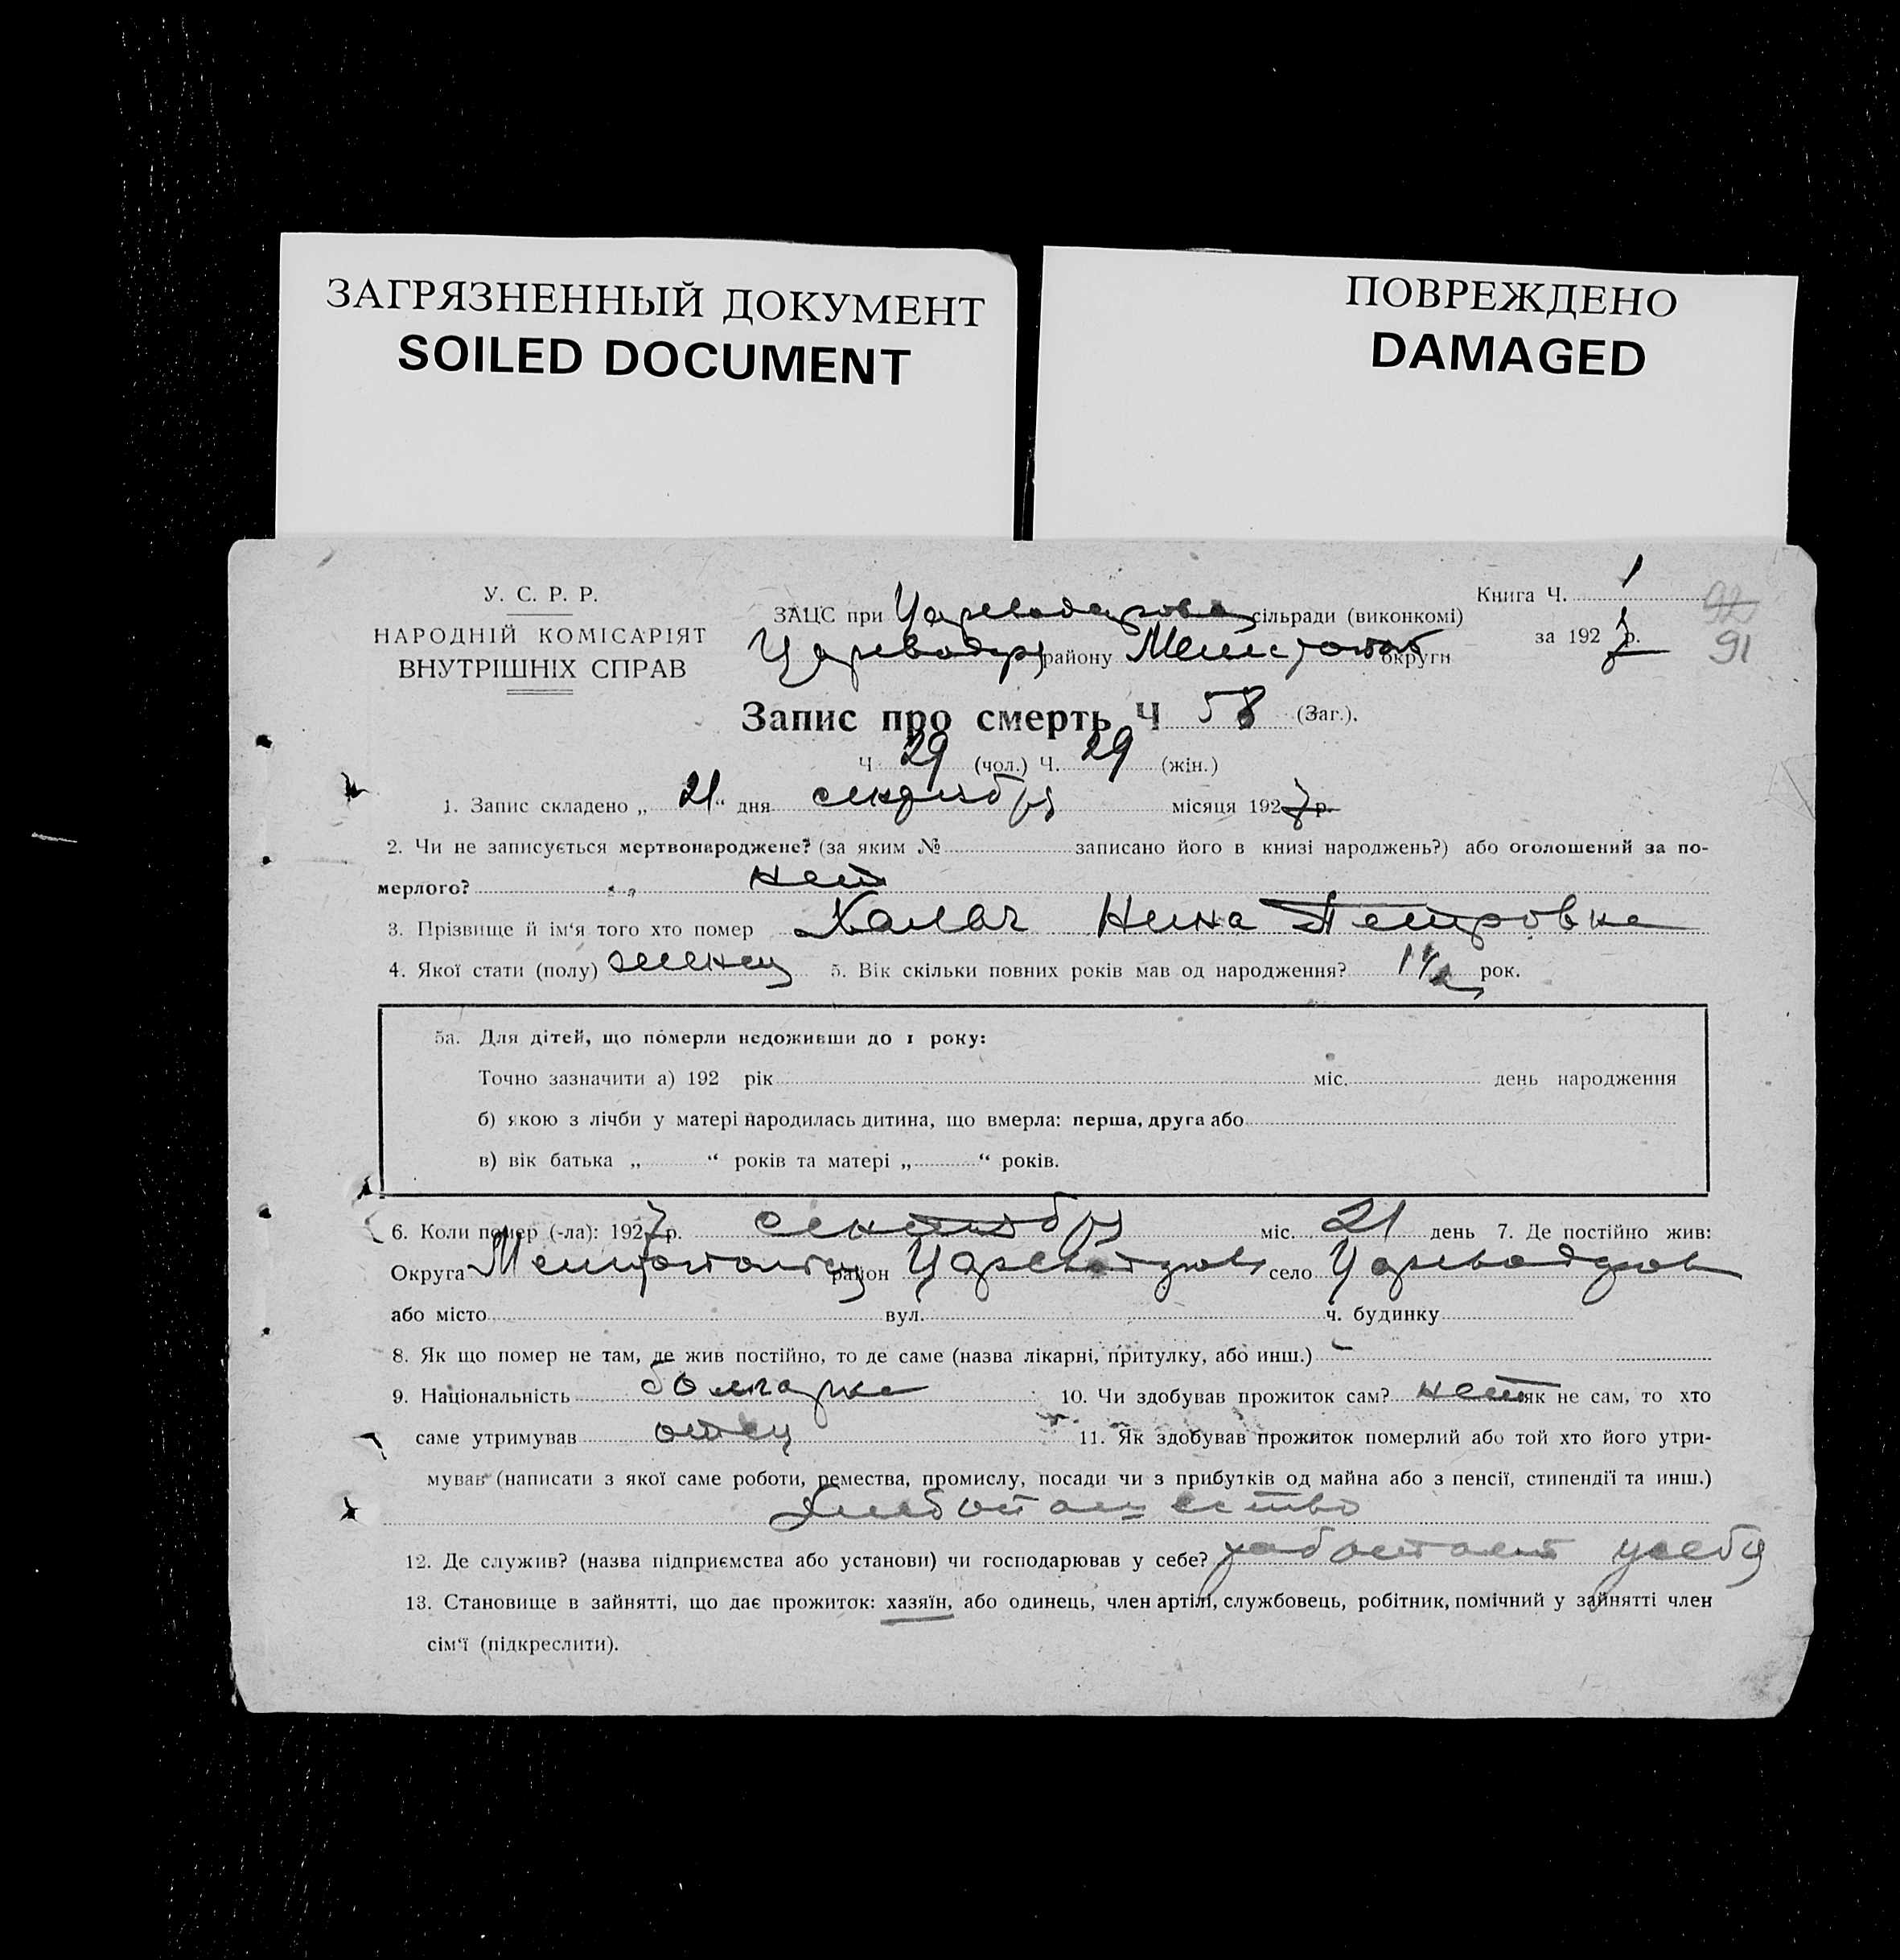 ЗАГРЯЗНЕННЫЙ ДОКУМЕНТ
SOILED DOCUMENT
ПОВРЕЖДЕНО
DAMAGED
У. С. Р. Р.
НАРОДНІЙ КОМІСАРІЯТ
ВНУТРІШНІХ СПРАВ
Книга Ч. 1
92
ЗАЦС при Цареводарова сільради (виконкомі)
за 1927 р.
91
Цареводар району Мелитопол округи
Запис про смерть Ч 58 (Заг.).
Ч 29 (чол.) Ч. 29 (жін.)
1. Запис складено „21“ дня сентября місяця 1927 р.
2. Чи не записується мертвонароджене? (за яким № записано його в книзі народжень?) або оголошений за по-
мерлого? нет
3. Прізвище й ім‘я того хто помер Нина Петровна
4. Якої стати (полу) женск 5. Вік скільки повних років мав од народження? 1½ рок.
5а. Для дітей, що померли недоживши до 1 року:
Точно зазначити а) 192 рік міс. день народження
б) якою з лічби у матері народилась дитина, що вмерла: перша, друга або
в) вік батька „ “ років та матері „ “ років.
6. Коли помер (-ла): 1927 р. сентября міс. 21 день 7. Де постійно жив:
Округа Мелитополь район Цареводаров село Цареводаров
або місто вул. ч. будинку
8. Як що помер не там, де жив постійно, то де саме (назва лікарні, притулку, або инш.) –
9. Національність болгарка 10. Чи здобував прожиток сам? нет як не сам, то хто
саме утримував отец 11. Як здобував прожиток померлий або той хто його утри-
мував (написати з якої саме роботи, ремества, промислу, посади чи з прибутків од майна або з пенсії, стипендії та инш.)
Хлебопашество
12. Де служив? (назва підприємства або установи) чи господарював у себе? работает у себя
13. Становище в зайнятті, що дає прожиток: хазяїн, або одинець, член артілі, службовець, робітник, помічний у зайнятті член
сім‘ї (підкреслити).